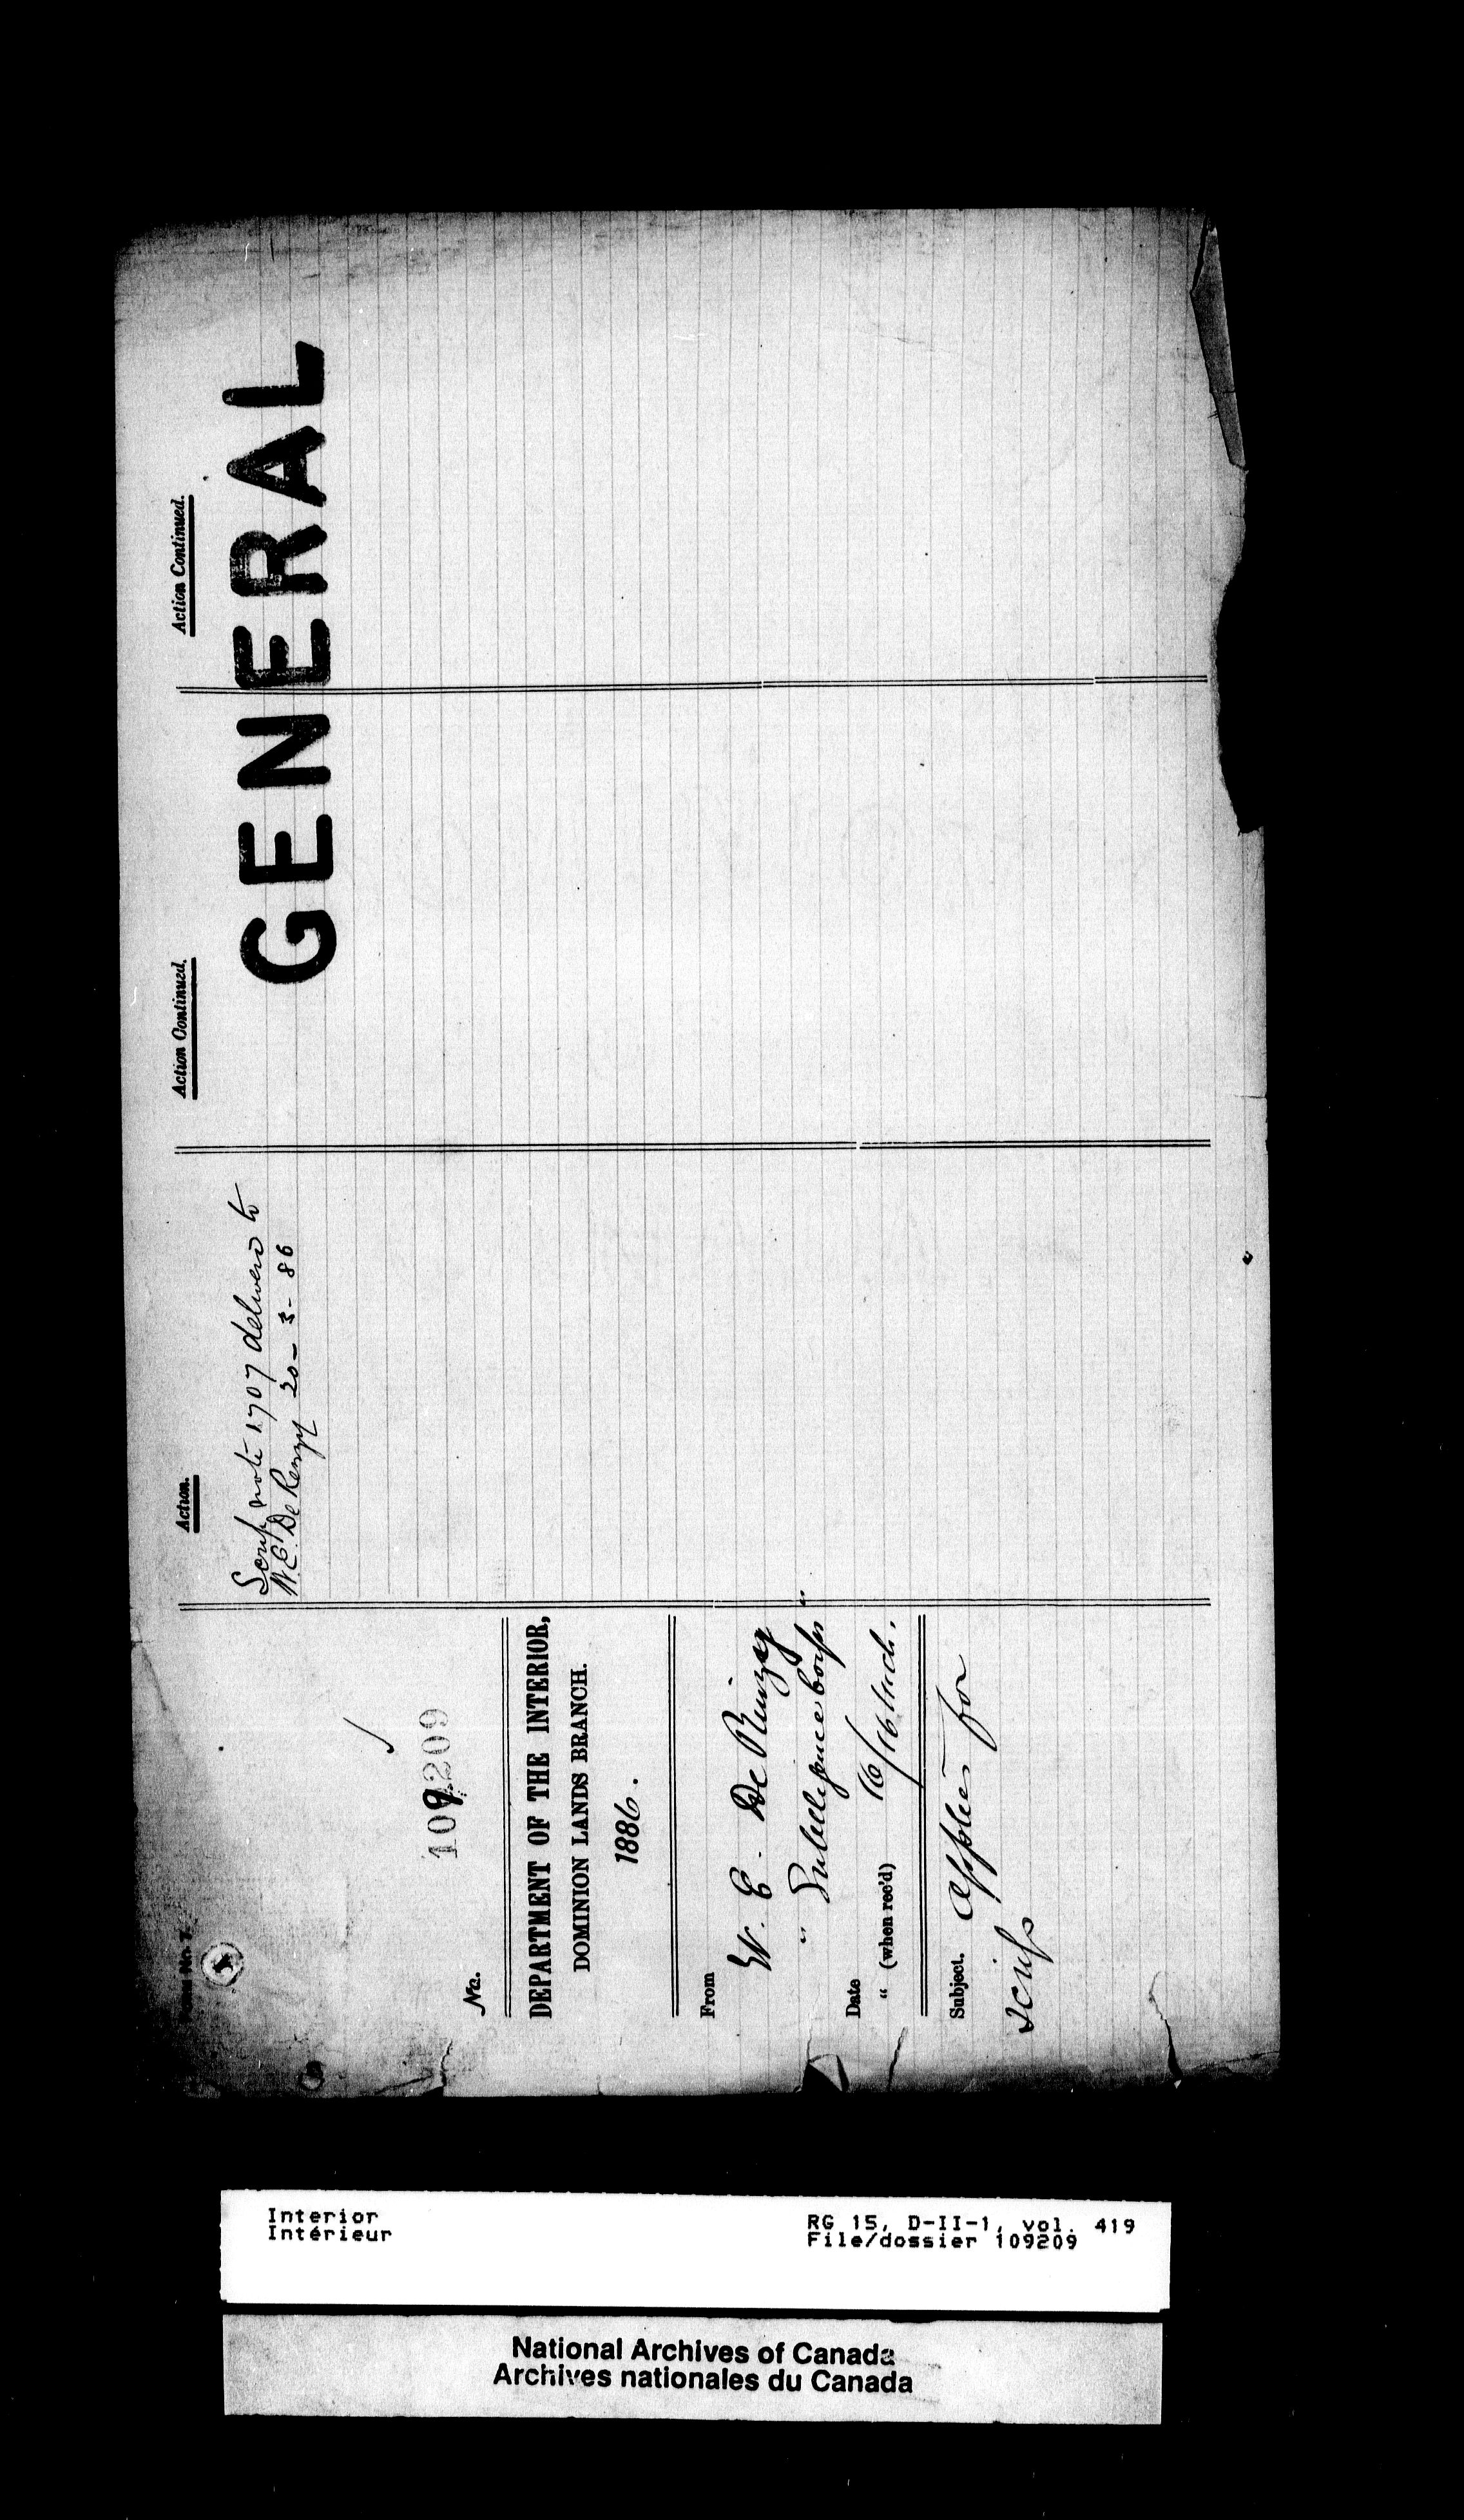 No. 109209
DEPARTMENT OF THE INTERIOR,
DOMINION LANDS BRANCH.
1886.
From
W. E. De Rinzy
" Intelligence Corps "
Date 16/16 Mch.
" (when rec'd)
Subject. Applies for
scrip
Action.
Scrip note 1707 delivered to
W.E. De Renzy 20-3-86
Action Continued.
Action Continued.
GENERAL
Interior
Intérieur
RG 15, D-II-1, vol. 419
File/dossier 109209
National Archives of Canada
Archives nationales du Canada